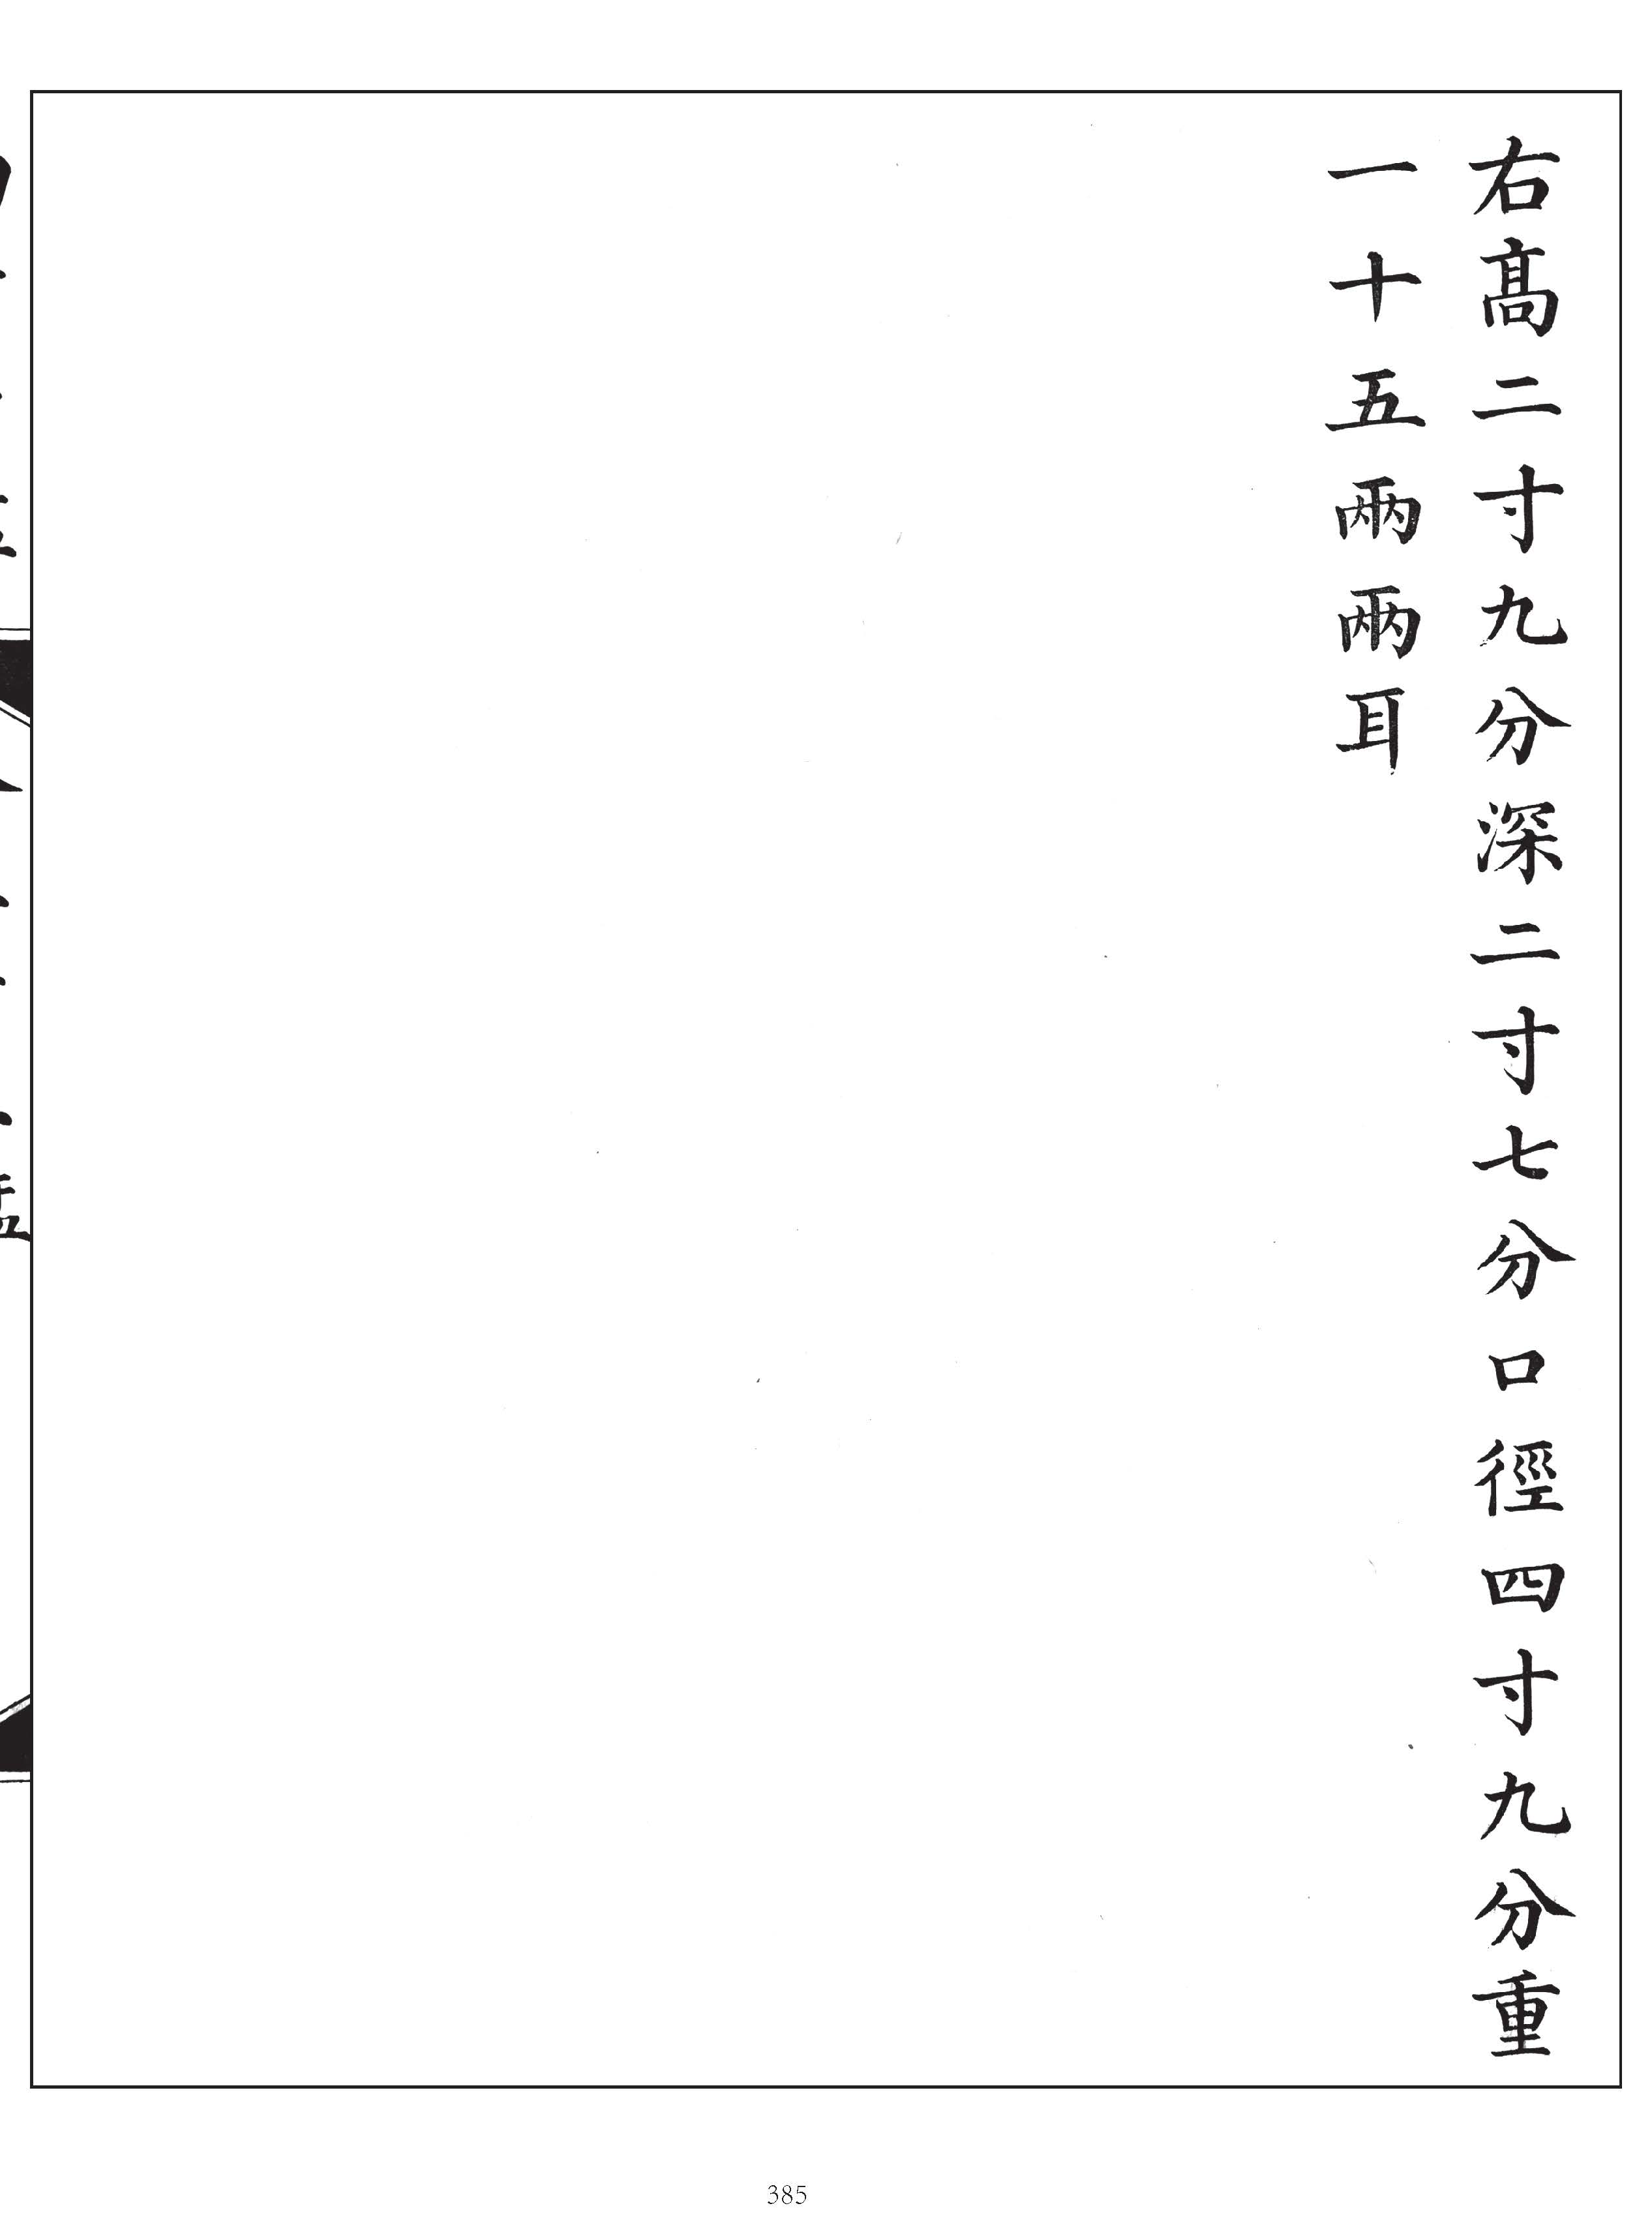 右高二寸九分深二寸七分口徑四寸九分重
一十五兩兩耳
385